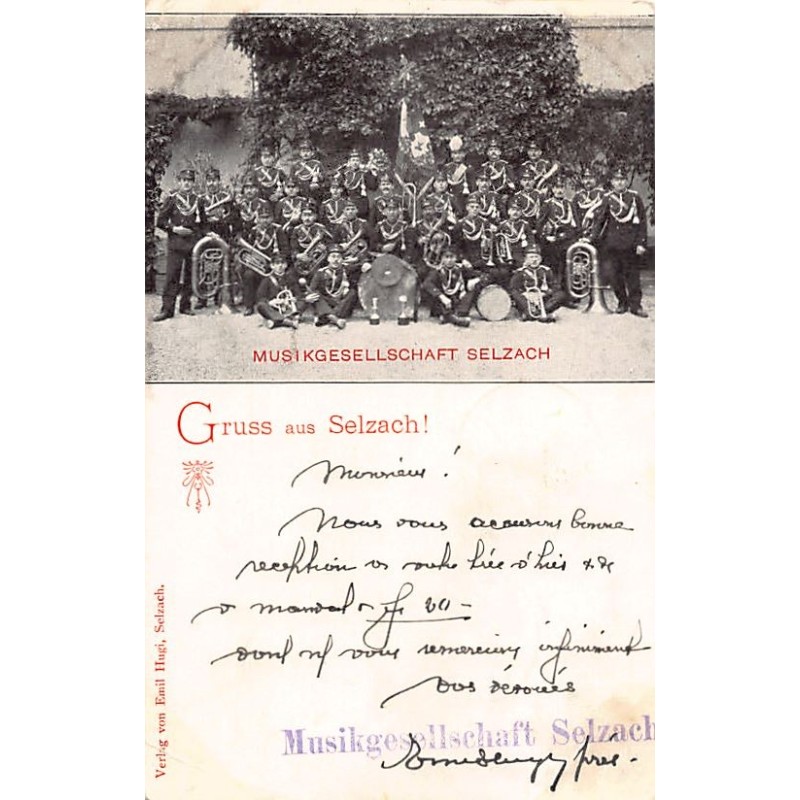 MUSIKGESELLSCHAFT SELZACH
Gruss aus Selzach!
Monsieur!
Nous vous accusons bonne
reception
mandat fr 20 –
dont ns vous remercions infiniment
Vos dévoués
Musikgesellschaft Selzach
prés.
Verlag von Emil Hugi, Selzach.